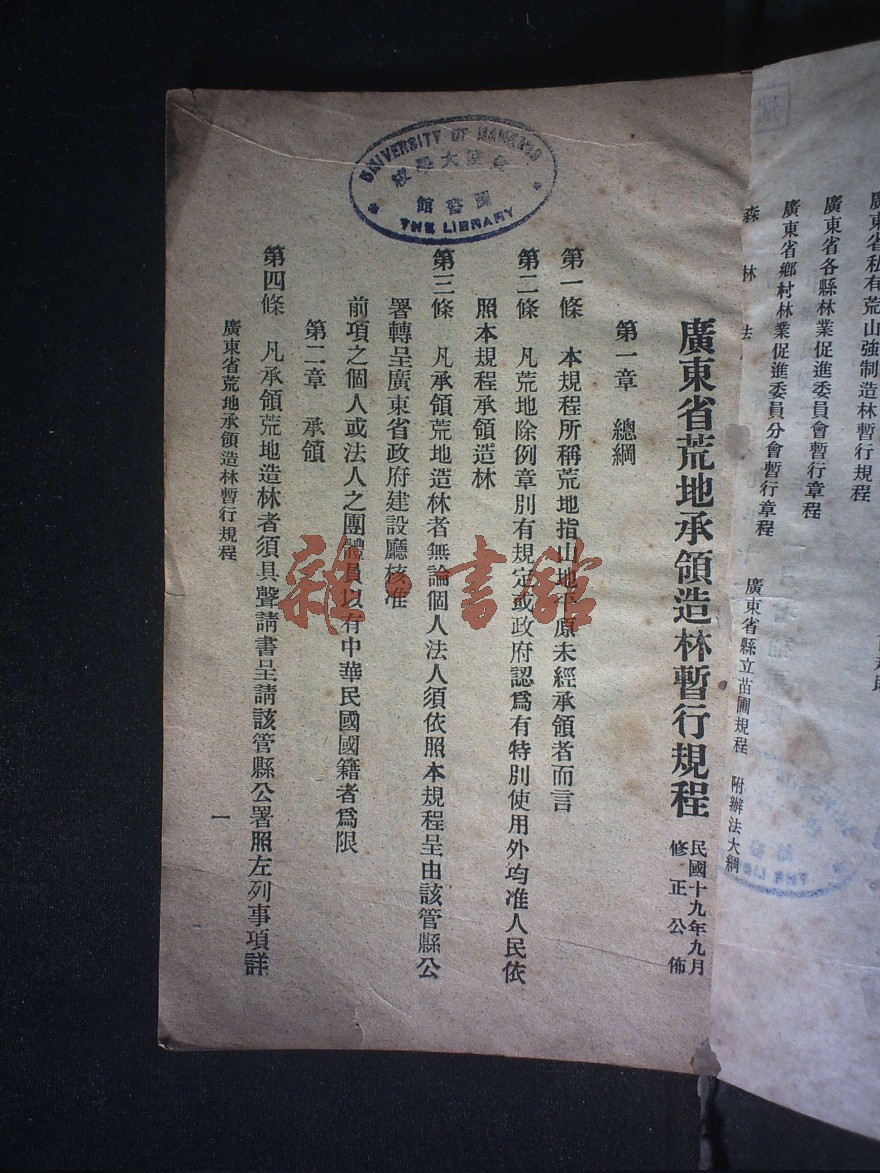 廣東省私有荒山強制造林暫行規程
廣東省各縣林業促進委員會暫行章程
廣東省鄉村林業促進委員分會暫行章程
森林法
廣東省縣立苗圃規程 附辦法大綱
廣東省荒地承領造林暫行規程 民國十九年九月修正公佈
第一章 總綱
第一條 本規程所稱荒地指山地平原未經承領者而言
第二條 凡荒地除例章別有規定或政府認爲有特別使用外均准人民依
照本規程承領造林
第三條 凡承領荒地造林者無論個人法人須依照本規程呈由該管縣公
署轉呈廣東省政府建設廳核准
前項之個人或法人之團體員以有中華民國國籍者爲限
第二章 承領
第四條 凡承領荒地造林者須具聲請書呈請該管縣公署照左列事項詳
廣東省荒地承領造林暫行規程
一
UNIVERSITY OF NANKING
圖書館
THE LIBRARY
雜·書館